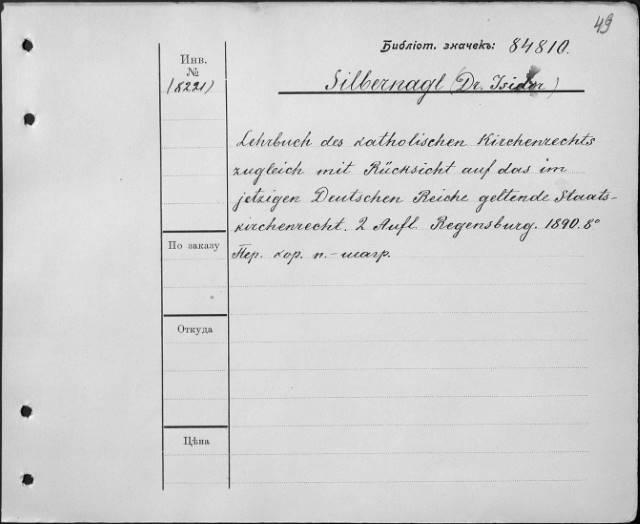 49
Библіот. значекъ: 84810.
Инв.
№
(8221)
Silbernagl (Dr. Isidor)
Lehrbuch des katholischen Kirchenrechts
zugleich mit Rücksicht auf das im
jetzigen Deutschen Reiche geltende Staats-
kirchenrecht. 2 Aufl. Regensburg. 1890. 8°
Пер. кор. п.-шагр.
По заказу
Откуда
Цѣна